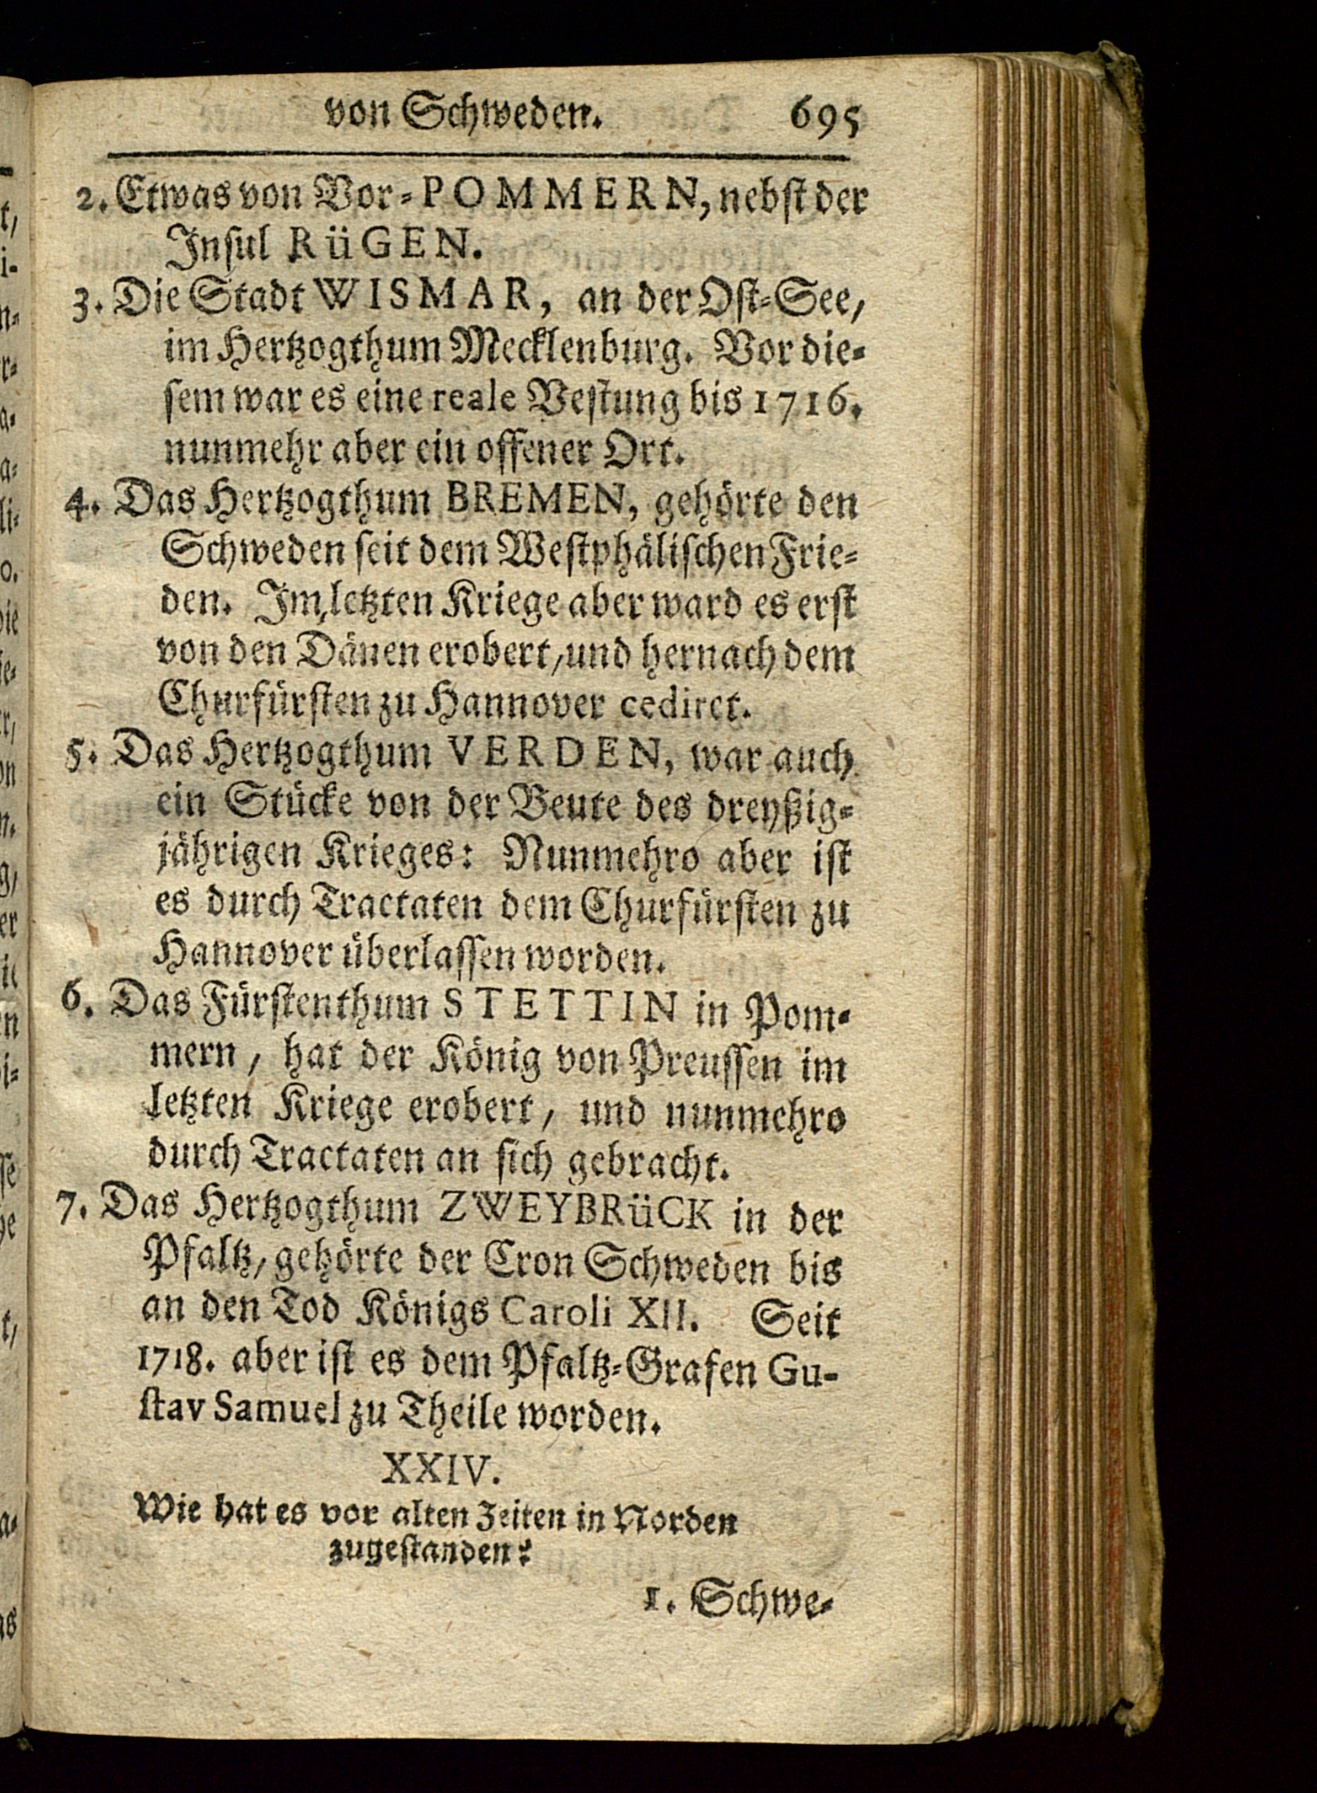 von Schweden. 695
2. Etwas von Vor-POMMERN, nebst der
Insul RüGEN.
3. Die Stadt WISMAR, an der Ost-See,
im Hertzogthum Mecklenburg. Vor die-
sem war es eine reale Vestung bis 1716.
nunmehr aber ein offener Ort.
4. Das Hertzogthum BREMEN, gehörte den
Schweden seit dem Westphälischen Frie-
den. Im letzten Kriege aber ward es erst
von den Dänen erobert, und hernach dem
Churfürsten zu Hannover cediret.
5. Das Hertzogthum VERDEN, war auch
ein Stücke von der Beute des dreyßig-
jährigen Krieges: Nunmehro aber ist
es durch Tractaten dem Churfürsten zu
Hannover überlassen worden.
6. Das Fürstenthum STETTIN in Pom-
mern, hat der König von Preussen im
letzten Kriege erobert, und nunmehro
durch Tractaten an sich gebracht.
7. Das Hertzogthum ZWEYBRüCK in der
Pfaltz, gehörte der Cron Schweden bis
an den Tod Königs Caroli XII. Seit
1718. aber ist es dem Pfaltz-Grafen Gu-
stav Samuel zu Theile worden.
XXIV.
Wie hat es vor alten Zeiten in Norden
zugestanden?
1. Schwe-